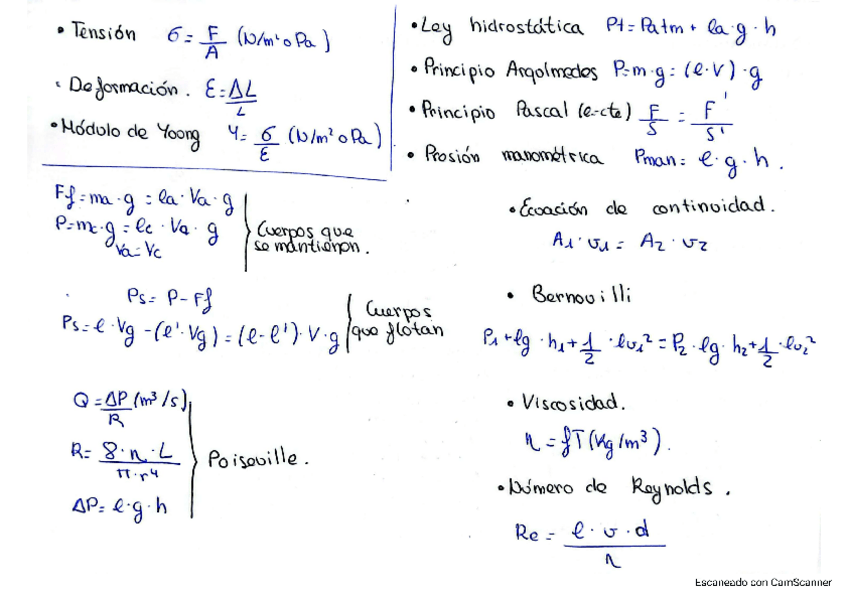 • Tensión σ = F/A (N/m² o Pa)
• Deformación. ε = ΔL/L
• Módulo de Yoong Y = σ/ε (N/m² o Pa)
• Ley hidrostática Pt = Patm + ρa · g · h
• Principio Arqimedes P = m · g = (ρ · V) · g
• Principio Pascal (ρ-cte) F/S = F'/S'
• Presión manométrica Pman = ρ · g · h.
Ff = ma · g = ρa · Va · g
P = mc · g = ρc · Va · g
Va = Vc
Cuerpos que
se mantienen.
• Ecoación de continuidad.
A1 · v1 = A2 · v2
Ps = P - Ff
Ps = ρ · Vg - (ρ' · Vg) = (ρ - ρ') · V · g
Cuerpos
que flotan
• Bernouilli
P1 + ρg · h1 + 1/2 · ρv1² = P2 · ρg · h2 + 1/2 · ρv2²
Q = ΔP/R (m³/s)
R = 8 · η · L / π · r⁴
ΔP = ρ · g · h
Poiseuille.
• Viscosidad.
η = fT (Kg/m³).
• Número de Reynolds.
Re = ρ · v · d / η
Escaneado con CamScanner